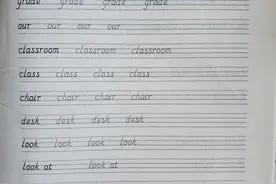 grade grade grade grade
our our our our
classroom classroom classroom
class class class class
chair chair chair chair
desk desk desk desk
look look look look
look at look at